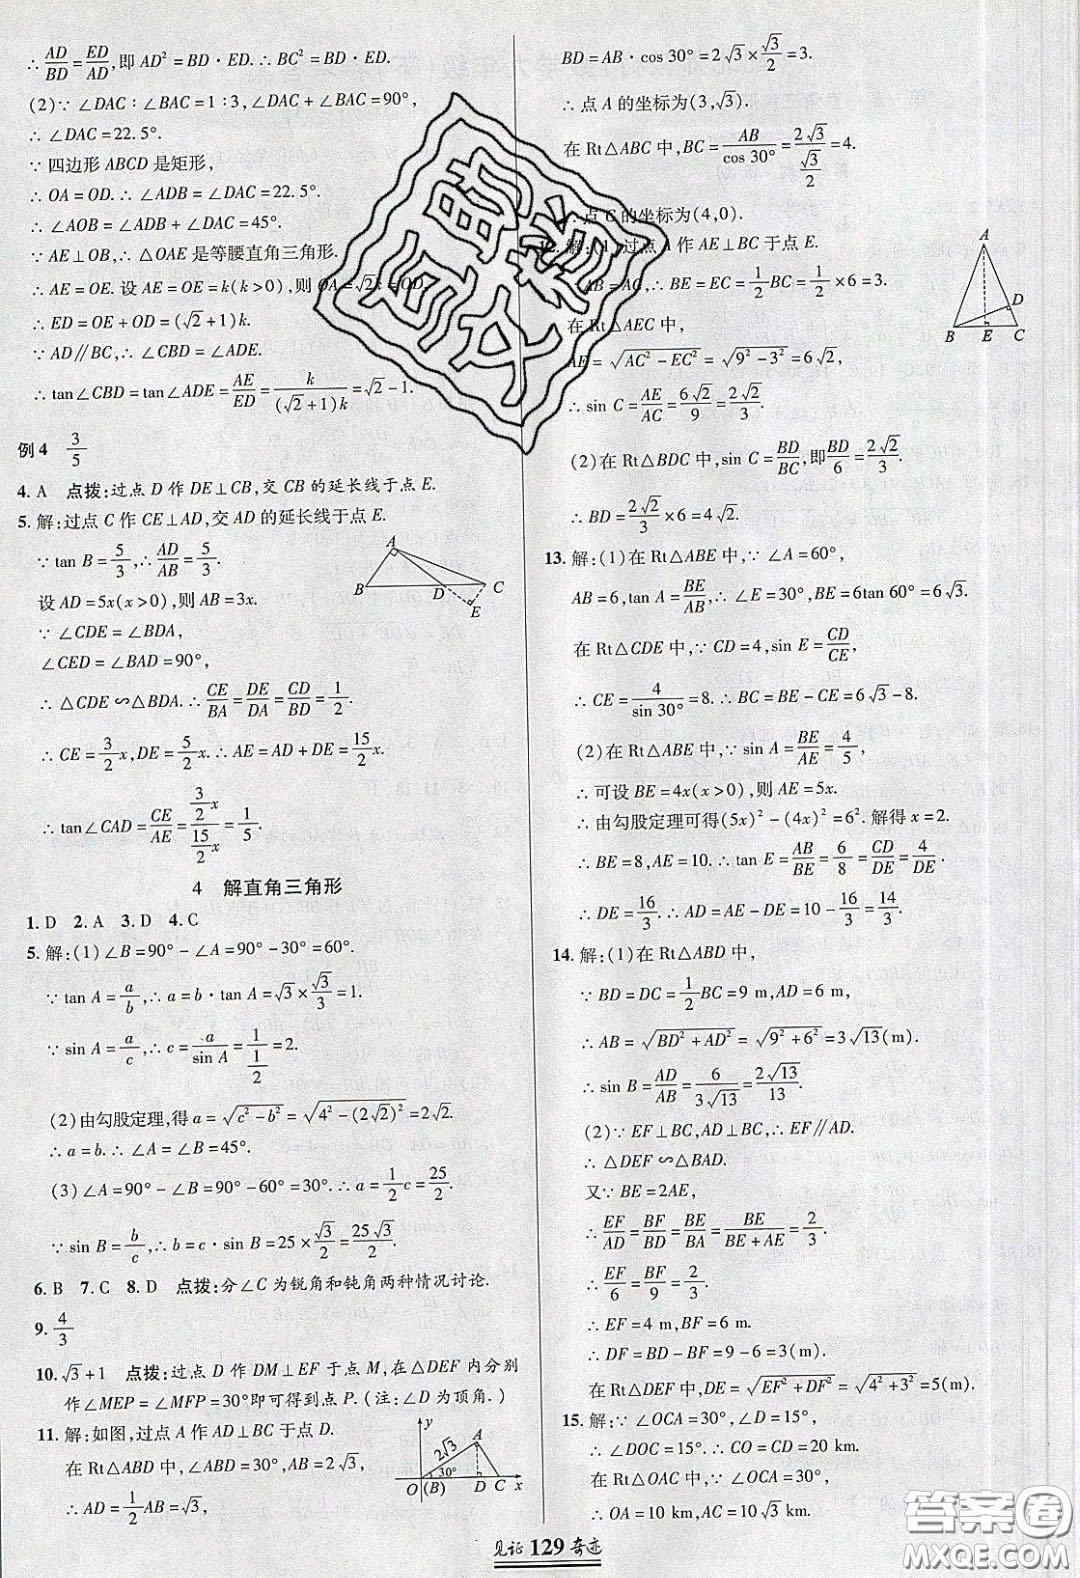 ∴ AD/BD = ED/AD, 即 AD² = BD·ED. ∴ BC² = BD·ED.
(2)∵ ∠DAC : ∠BAC = 1 : 3, ∠DAC + ∠BAC = 90°,
∴ ∠DAC = 22.5°.
∵ 四边形 ABCD 是矩形,
∴ OA = OD. ∴ ∠ADB = ∠DAC = 22.5°.
∴ ∠AOB = ∠DAC + ∠ADB = 45°.
∵ AE⊥OB, ∴ △OAE 是等腰直角三角形.
∴ AE = OE. 设 AE = OE = k(k>0), 则 OA = √2k = OD.
∴ ED = OE + OD = (√2 + 1)k.
∵ AD∥BC, ∴ ∠CBD = ∠ADE.
∴ tan∠CBD = tan∠ADE = AE/ED = k/((√2+1)k) = √2 - 1.
例4 3/5
4. A 点拨:过点 D 作 DE⊥CB, 交 CB 的延长线于点 E.
5. 解:过点 C 作 CE⊥AD, 交 AD 的延长线于点 E.
∵ tan B = 5/3, ∴ AD/AB = 5/3.
设 AD = 5x(x>0), 则 AB = 3x.
A B D C E
∵ ∠CDE = ∠BDA,
∠CED = ∠BAD = 90°,
∴ △CDE∽△BDA. ∴ CE/BA = DE/DA = CD/BD = 1/2.
∴ CE = 3/2 x, DE = 5/2 x. ∴ AE = AD + DE = 15/2 x.
∴ tan∠CAD = CE/AE = (3/2 x)/(15/2 x) = 1/5.
4 解直角三角形
1. D 2. A 3. D 4. C
5. 解:(1)∠B = 90° - ∠A = 90° - 30° = 60°.
∵ tan A = a/b, ∴ a = b·tan A = √3 × √3/3 = 1.
∵ sin A = a/c, ∴ c = a/sin A = 1/(1/2) = 2.
(2)由勾股定理, 得 a = √(c² - b²) = √(4² - (2√2)²) = 2√2.
∴ a = b. ∴ ∠A = ∠B = 45°.
(3)∠A = 90° - ∠B = 90° - 60° = 30°. ∴ a = 1/2 c = 25/2.
∵ sin B = b/c, ∴ b = c·sin B = 25 × √3/2 = 25√3/2.
6. B 7. C 8. D 点拨:分∠C 为锐角和钝角两种情况讨论.
9. 4/3
10. √3 + 1 点拨:过点 D 作 DM⊥EF 于点 M, 在△DEF 内分别
作∠MEP = ∠MFP = 30°即可得到点 P.(注:∠D 为顶角.)
11. 解:如图, 过点 A 作 AD⊥BC 于点 D.
在 Rt△ABD 中, ∠ABD = 30°, AB = 2√3,
∴ AD = 1/2 AB = √3,
y A 2√3 30° O (B) D C x
BD = AB·cos 30° = 2√3 × √3/2 = 3.
∴ 点 A 的坐标为(3, √3).
在 Rt△ABC 中, BC = AB/cos 30° = 2√3/(√3/2) = 4.
∴ 点 C 的坐标为(4, 0).
12. 解:(1)过点 A 作 AE⊥BC 于点 E.
∵ AB = AC, ∴ BE = EC = 1/2 BC = 1/2 × 6 = 3.
A D B E C
在 Rt△AEC 中,
AE = √(AC² - EC²) = √(9² - 3²) = 6√2,
∴ sin C = AE/AC = 6√2/9 = 2√2/3.
(2)在 Rt△BDC 中, sin C = BD/BC, 即 BD/6 = 2√2/3.
∴ BD = 2√2/3 × 6 = 4√2.
13. 解:(1)在 Rt△ABE 中, ∵ ∠A = 60°,
AB = 6, tan A = BE/AB, ∴ ∠E = 30°, BE = 6tan 60° = 6√3.
在 Rt△CDE 中, ∵ CD = 4, sin E = CD/CE,
∴ CE = 4/sin 30° = 8. ∴ BC = BE - CE = 6√3 - 8.
(2)在 Rt△ABE 中, ∵ sin A = BE/AE = 4/5,
∴ 可设 BE = 4x(x>0), 则 AE = 5x.
∴ 由勾股定理可得(5x)² - (4x)² = 6². 解得 x = 2.
∴ BE = 8, AE = 10. ∴ tan E = AB/BE = 6/8 = CD/DE = 4/DE.
∴ DE = 16/3. ∴ AD = AE - DE = 10 - 16/3 = 14/3.
14. 解:(1)在 Rt△ABD 中,
∵ BD = DC = 1/2 BC = 9 m, AD = 6 m,
∴ AB = √(BD² + AD²) = √(9² + 6²) = 3√13(m).
∴ sin B = AD/AB = 6/(3√13) = 2√13/13.
(2)∵ EF⊥BC, AD⊥BC, ∴ EF∥AD.
∴ △DEF∽△BAD.
又∵ BE = 2AE,
∴ EF/AD = BF/BD = BE/BA = BE/(BE + AE) = 2/3.
∴ EF/6 = BF/9 = 2/3.
∴ EF = 4 m, BF = 6 m.
∴ DF = BD - BF = 9 - 6 = 3(m).
在 Rt△DEF 中, DE = √(EF² + DF²) = √(4² + 3²) = 5(m).
15. 解:∵ ∠OCA = 30°, ∠D = 15°,
∴ ∠DOC = 15°. ∴ CO = CD = 20 km.
在 Rt△OAC 中, ∵ ∠OCA = 30°,
∴ OA = 10 km, AC = 10√3 km.
见证 129 奇迹
答案圈
MXQE.COM